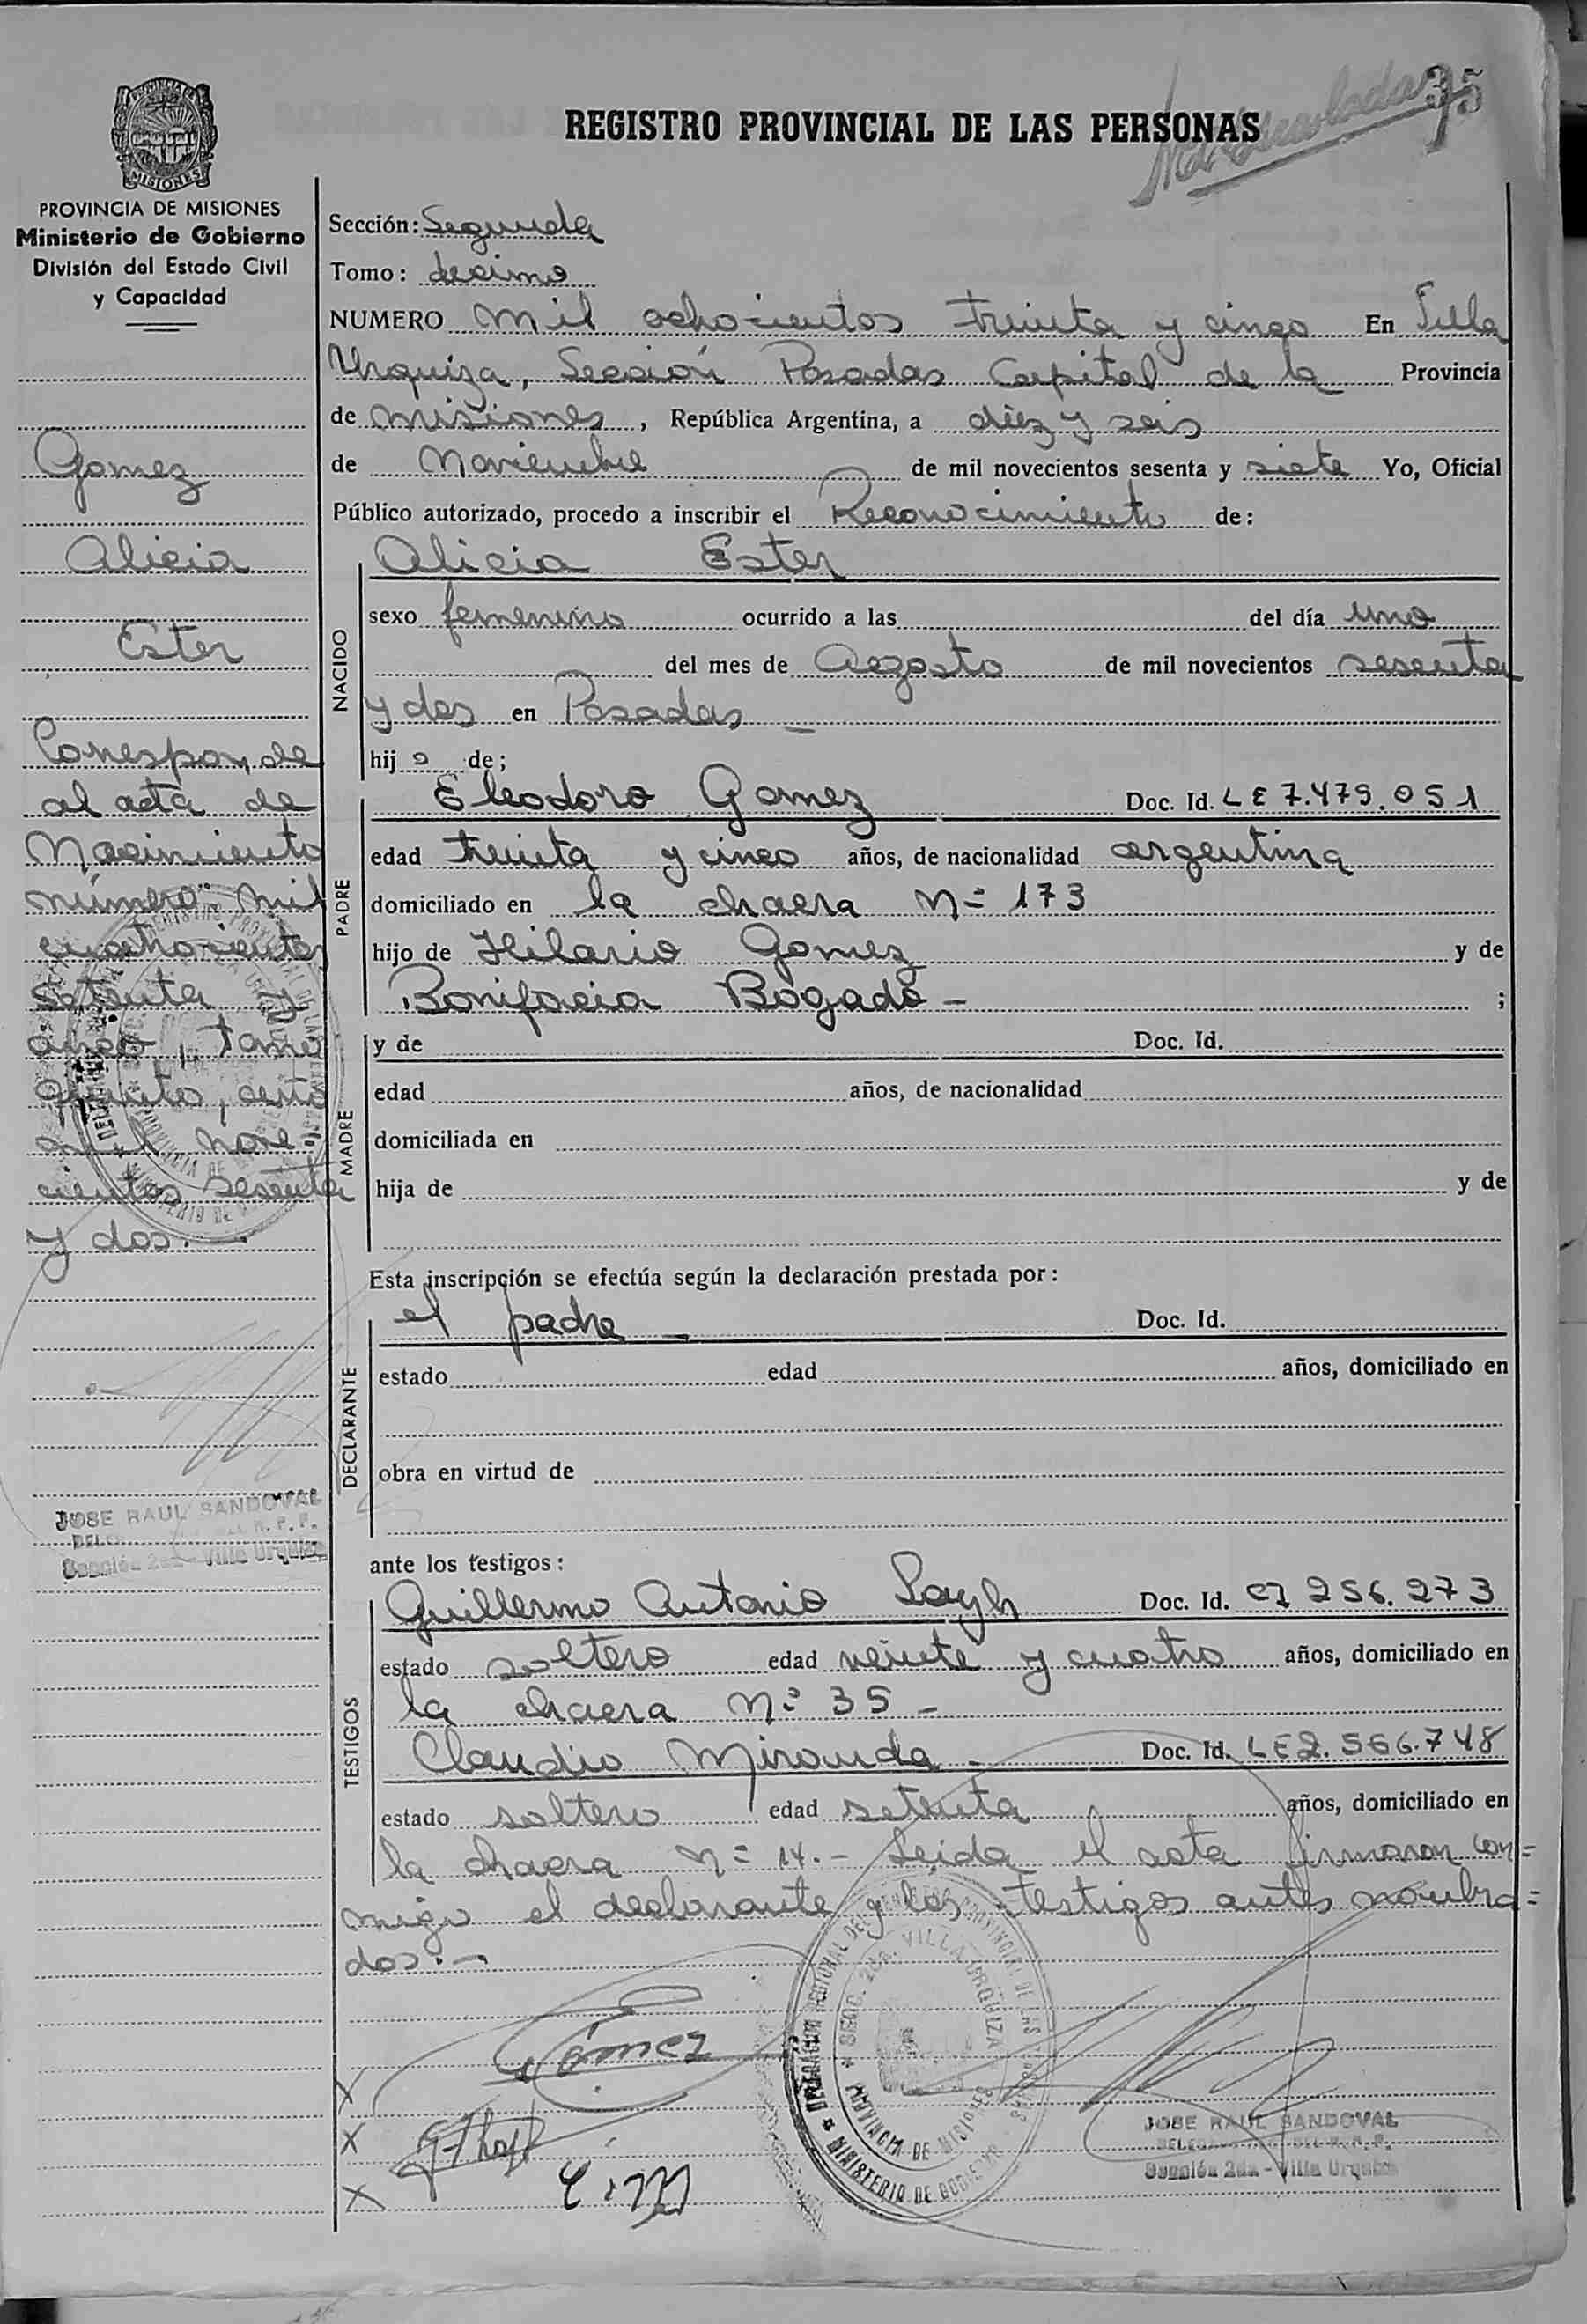 35
REGISTRO PROVINCIAL DE LAS PERSONAS
PROVINCIA DE MISIONES
Ministerio de Gobierno
División del Estado Civil
y Capacidad
Gomez
Alicia
Ester
Corresponde
al acta de
Nacimiento
número mil
cuatrocientos
setenta y
cinco, tomo
quinto, año
mil nove=
cientos sesenta
y dos.-
JOSE RAUL SANDOVAL
Sección 2da - Villa Urquiza
Sección: Segunda
Tomo: decimo
NUMERO mil ochocientos treinta y cinco En Villa
Urquiza, Sección Posadas Capital de la Provincia
de Misiones, República Argentina, a diez y seis
de Noviembre de mil novecientos sesenta y siete Yo, Oficial
Público autorizado, procedo a inscribir el Reconocimiento de:
NACIDO
Alicia Ester
sexo femenino ocurrido a las del día uno
del mes de Agosto de mil novecientos sesenta
y dos en Posadas -
hij a de;
PADRE
Eleodoro Gomez Doc. Id. LE 7.479.051
edad treinta y cinco años, de nacionalidad argentina
domiciliado en la chacra Nº 173
hijo de Hilario Gomez y de
Bonifacia Bogado - ;
MADRE
y de Doc. Id.
edad años, de nacionalidad
domiciliada en
hija de y de
Esta inscripción se efectúa según la declaración prestada por:
DECLARANTE
el padre - Doc. Id.
estado edad años, domiciliado en
obra en virtud de
ante los testigos:
TESTIGOS
Guillermo Antonio Doc. Id. CI 256.273
estado soltero edad veinte y cuatro años, domiciliado en
la chacra Nº 35 -
Claudio Miranda - Doc. Id. LE 2.566.748
estado soltero edad setenta años, domiciliado en
la chacra Nº 14.- Leida el acta firmaron con=
migo el declarante y los testigos antes nombra=
dos.-
Gómez
C. M
DELEGACION REGIONAL DEL REGISTRO PROVINCIAL DE LAS PERSONAS
SECC. 2da. VILLA URQUIZA
PROVINCIA DE MISIONES
MINISTERIO DE GOBIERNO
JOSE RAUL SANDOVAL
Sección 2da - Villa Urquiza